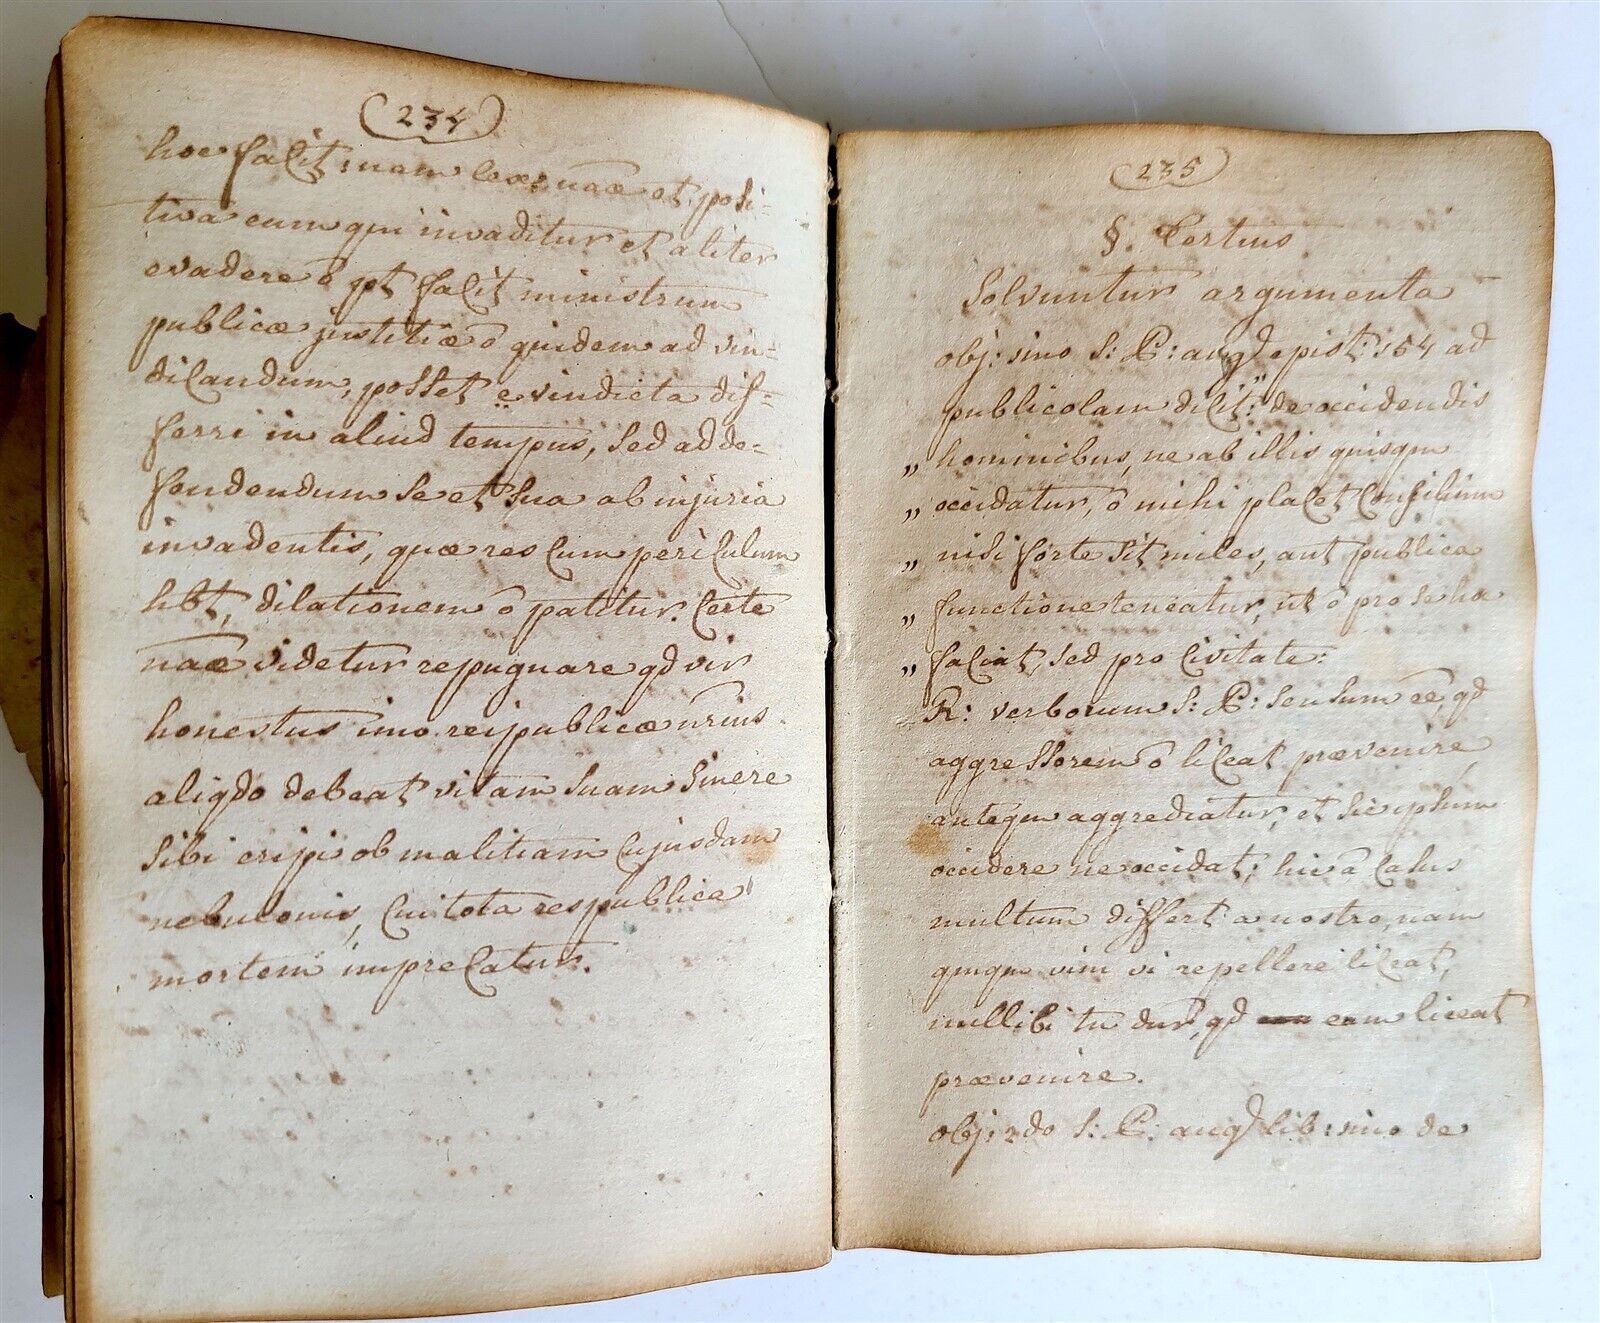 (234)
hoc facit; nam lex naãe et posi=
tiva eum qui invaditur et aliter
evadere õ pt facit ministrum
publicæ justitiæ õ quidem ad vin=
dicandum, posset e vindicta dif=
ferri in aliud tempus, sed ad de=
fendendum se et sua ab injuria
invadentis, quæ res cum periculum
hbt, dilationem õ patitur. Certe
naãe videtur repugnare qd vir
honestus imo reipublicæ nrius
aliqdo debeat vitam suam sinere
sibi eripi ob malitiam cujusdam
nebulonis, cui tota respublica
mortem imprecatur.
(235)
§. Tertius
Solvuntur argumenta
obj: 1mo S: P: augꝰ epist: 154 ad
publicolam dicit: „de occidendis
„ hominibus, ne ab illis quisqm
„ occidatur, õ mihi placet consilium
„ nisi forte sit miles, aut publica
„ functione teneatur, ut õ pro se hoc
„ faciat, sed pro civitate:
R: verborum S: P: sensum eẽ, qd
aggressorem õ liceat prævenire,
anteqm aggrediatur, et sic ipsum
occidere ne occidat; hic ã casus
multum differt a nostro, nam
quqm vim vi repellere liceat,
nullibi tñ dur, qd eum liceat
prævenire.
obj: 2do S: P: augꝰ lib: 1mo de